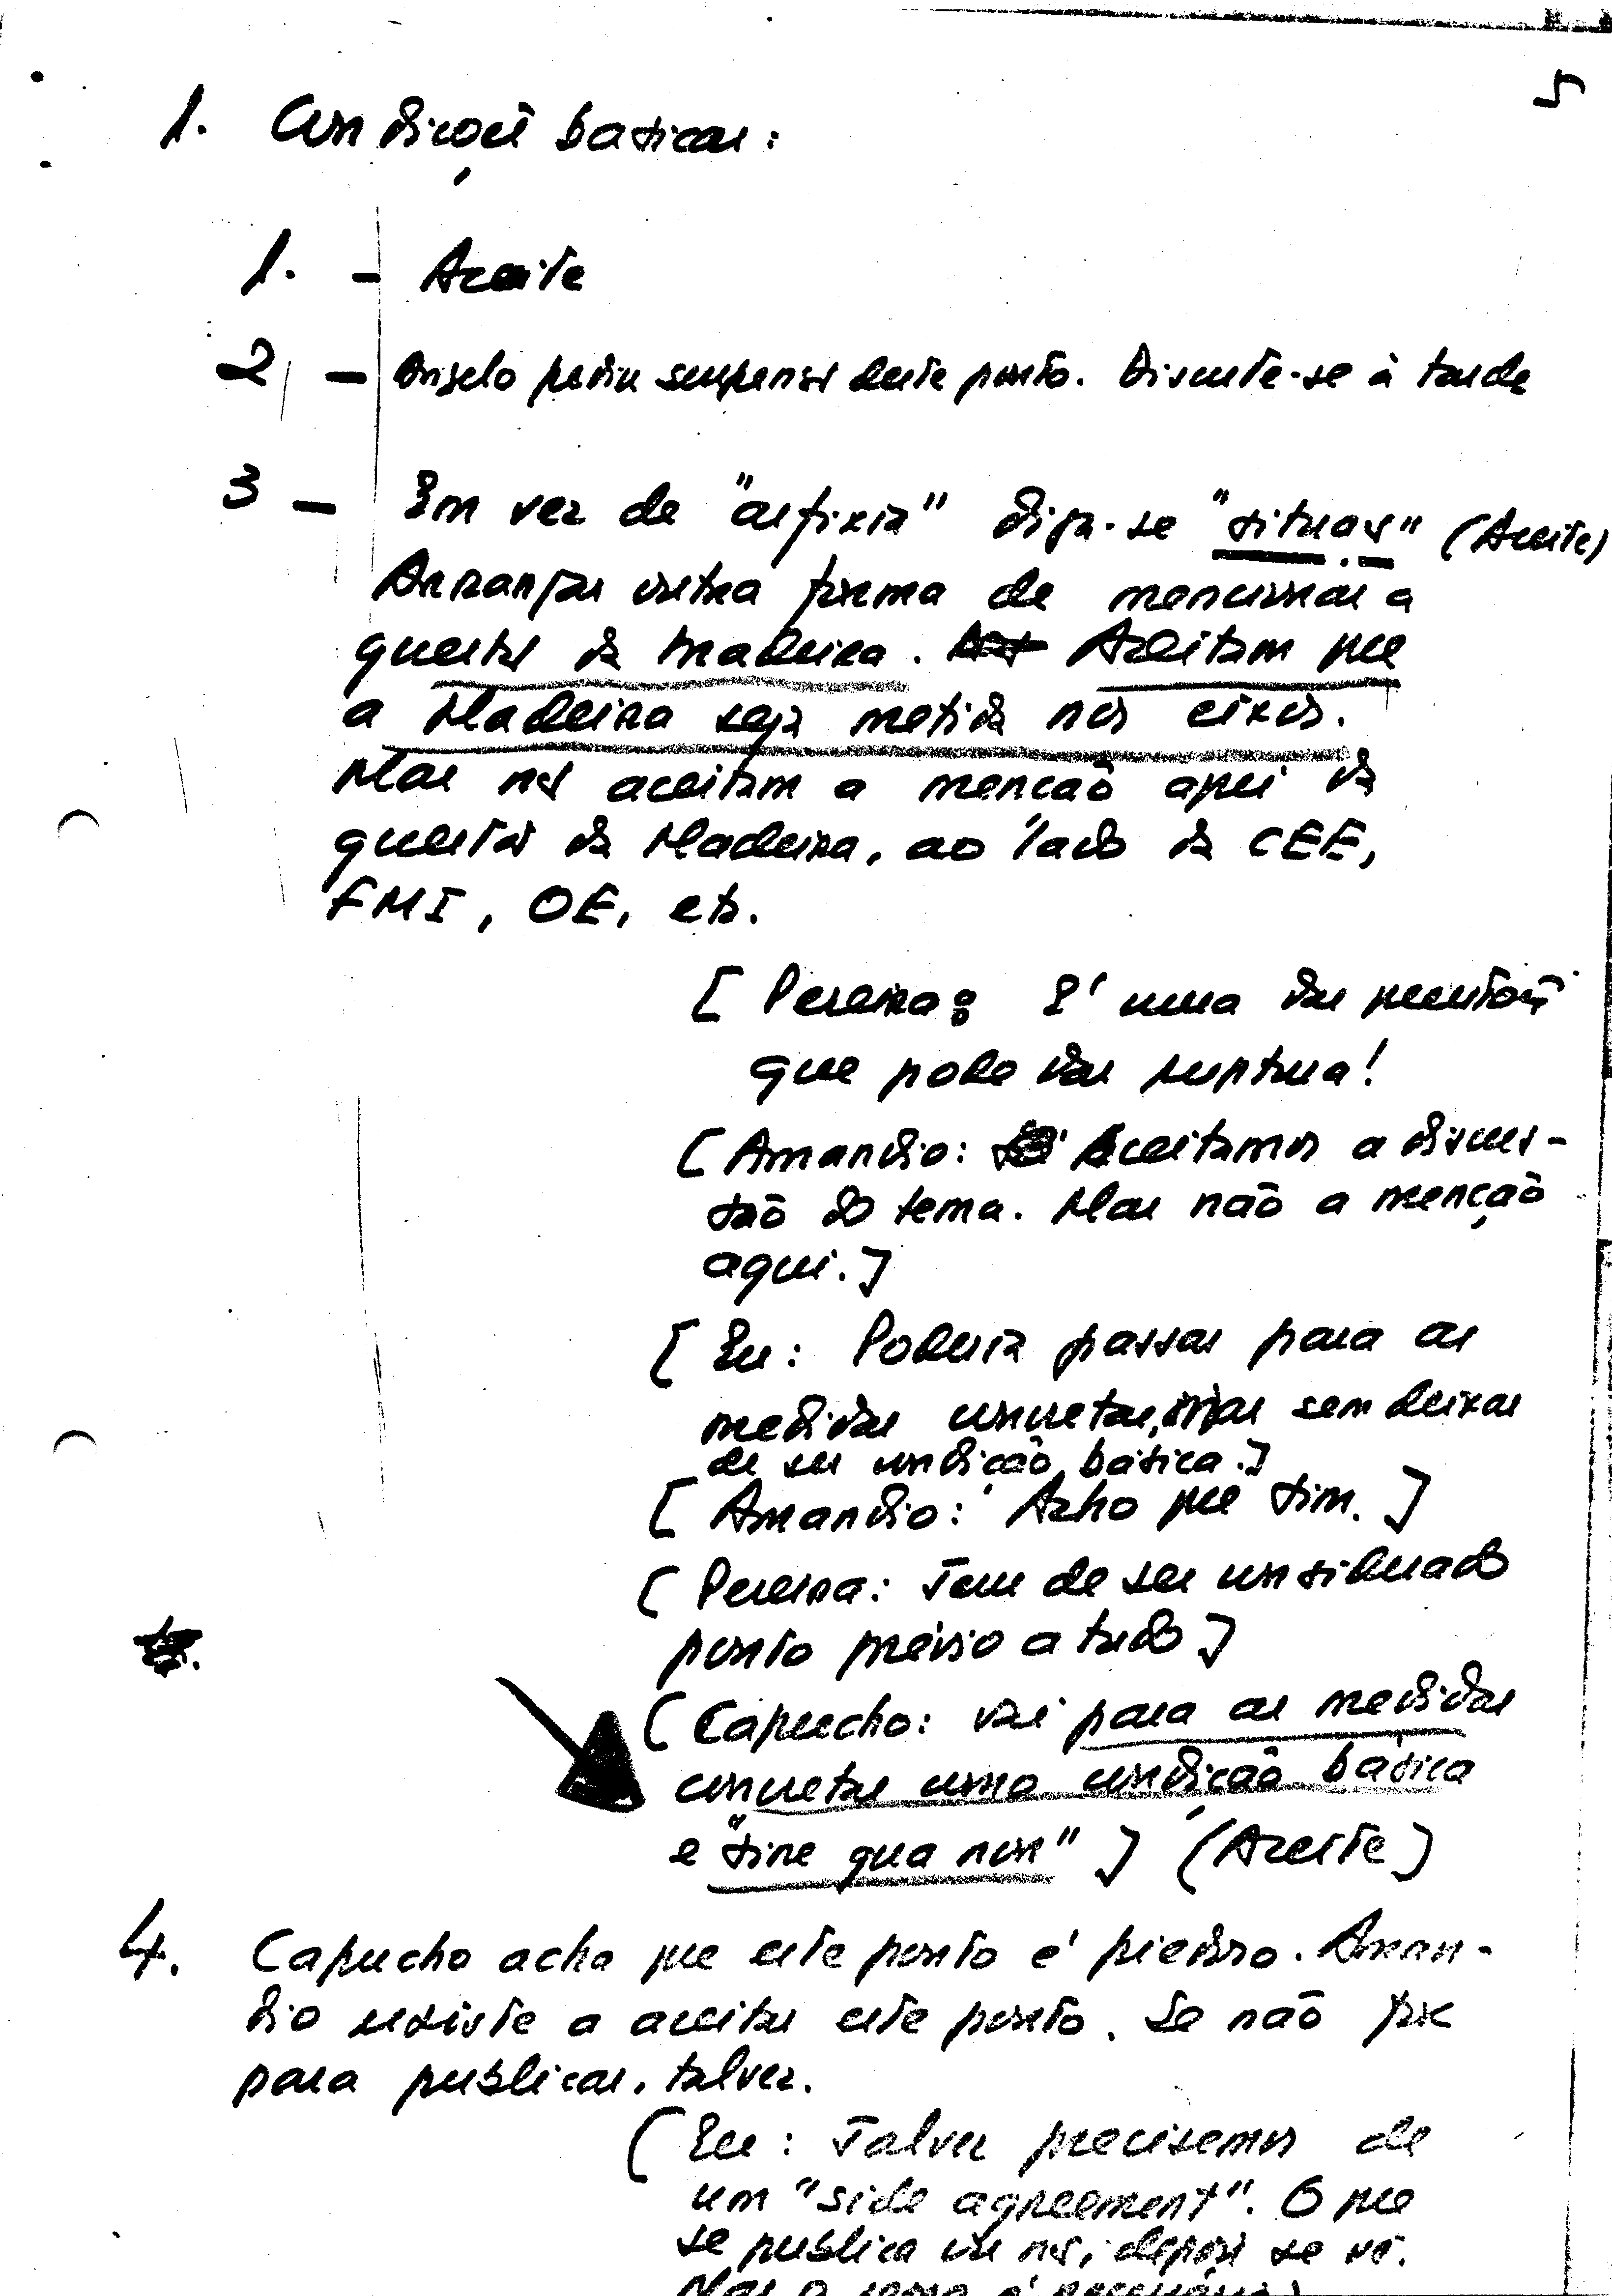 5
1. Condições básicas:
1. - Aceite
2 - Angelo pediu suspensão deste ponto. Discute-se à tarde
3 - Em vez de "asfixia" diga-se "situação" (Aceite)
Arranjar outra forma de mencionar a
questão da Madeira. Aceitam que
a Madeira seja metida nos eixos.
Mas não aceitam a menção aqui da
questão da Madeira, ao lado da CEE,
FMI, OE, etc.
[Pereira: É uma das questões
que pode dar ruptura!
[Amandio: Aceitamos a discus-
são do tema. Mas não a menção
aqui.]
[Eu: Poderia passar para as
medidas concretas, mas sem deixar
de ser condição básica.]
[Amandio: Acho que sim.]
[Pereira: Tem de ser considerado
ponto prévio a tudo]
[Capucho: Vai para as medidas
concretas como condição básica
e "sine qua non"] (Aceite)
4. Capucho acha que este ponto é piedoso. Aman-
dio resiste a aceitar este ponto. Se não for
para publicar, talvez.
[Eu: Talvez precisemos de
um "side agreement". O que
se publica ou não, depois se vê.